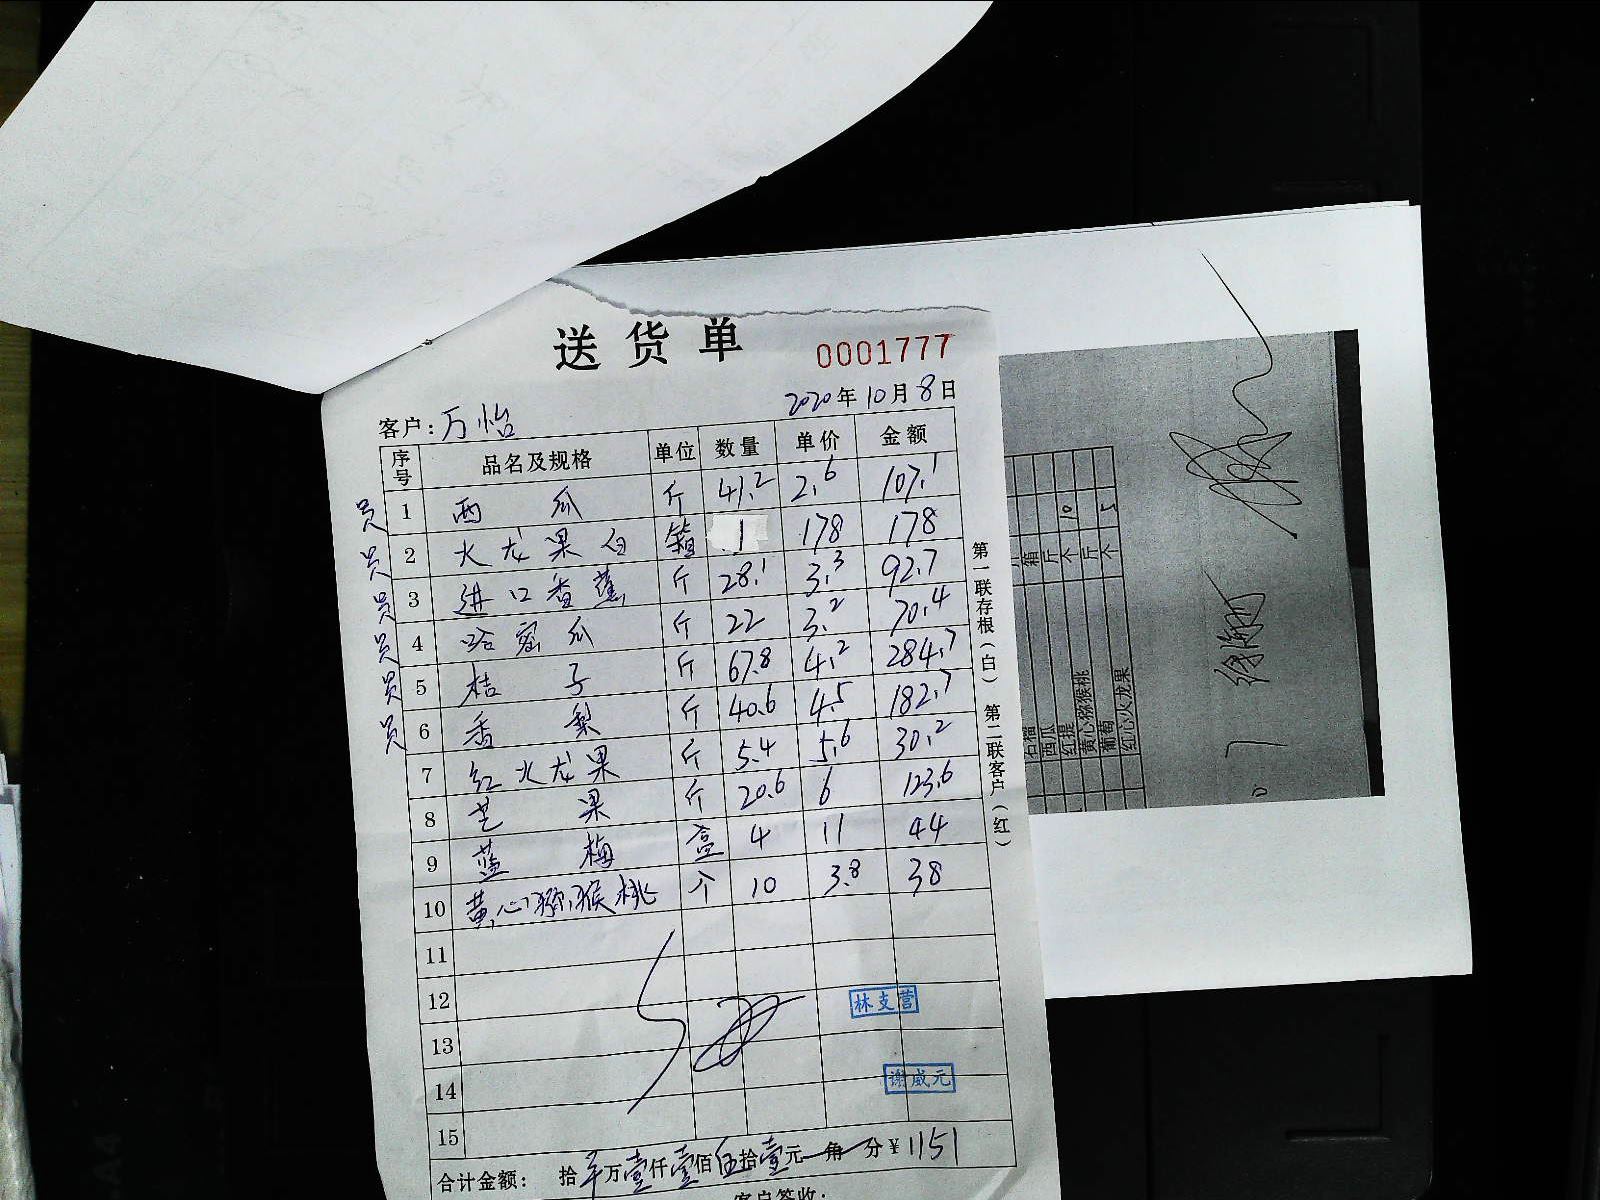 送货单 0001777
2020年10月8日
客户:万怡
序号 品名及规格 单位 数量 单价 金额
员 1 西瓜 斤 41.2 2.6 107.1
员 2 火龙果白 箱 1 178 178
员 3 进口香蕉 斤 28.1 3.3 92.7
员 4 哈密瓜 斤 22 3.2 70.4
员 5 桔子 斤 67.8 4.2 284.7
员 6 香梨 斤 40.6 4.5 182.7
7 红火龙果 斤 5.4 5.6 30.2
8 芒果 斤 20.6 6 123.6
9 蓝梅 盒 4 11 44
10 黄心猕猴桃 个 10 3.8 38
11
12 林支营
13
14 谢威元
15
合计金额: 拾 万壹仟壹佰伍拾壹元 角 分¥1151
客户签收:
第一联存根(白) 第二联客户(红)
石榴
西瓜 箱
红提 斤
黄心猕猴桃 个 10
葡萄 斤
红心火龙果 个 5
7